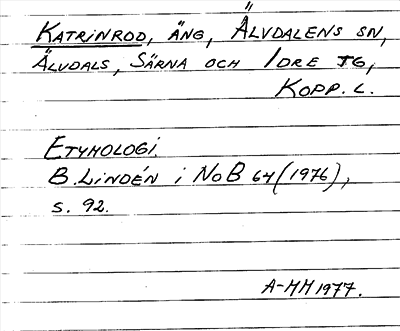 KATRINROD, ÄNG, ÄLVDALENS SN,
ÄLVDALS, SÄRNA OCH IDRE TG,
KOPP. L.
ETYMOLOGI.
B. LINDÉN i NoB 64 (1976),
s. 92.
A-MM 1977.